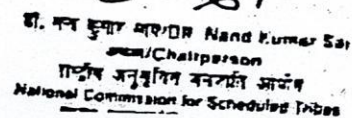 डॉ. नन्द कुमार साय/DR Nand Kumar Sai
अध्यक्ष/Chairperson
राष्ट्रीय अनुसूचित जनजाति आयोग
National Commission for Scheduled Tribes